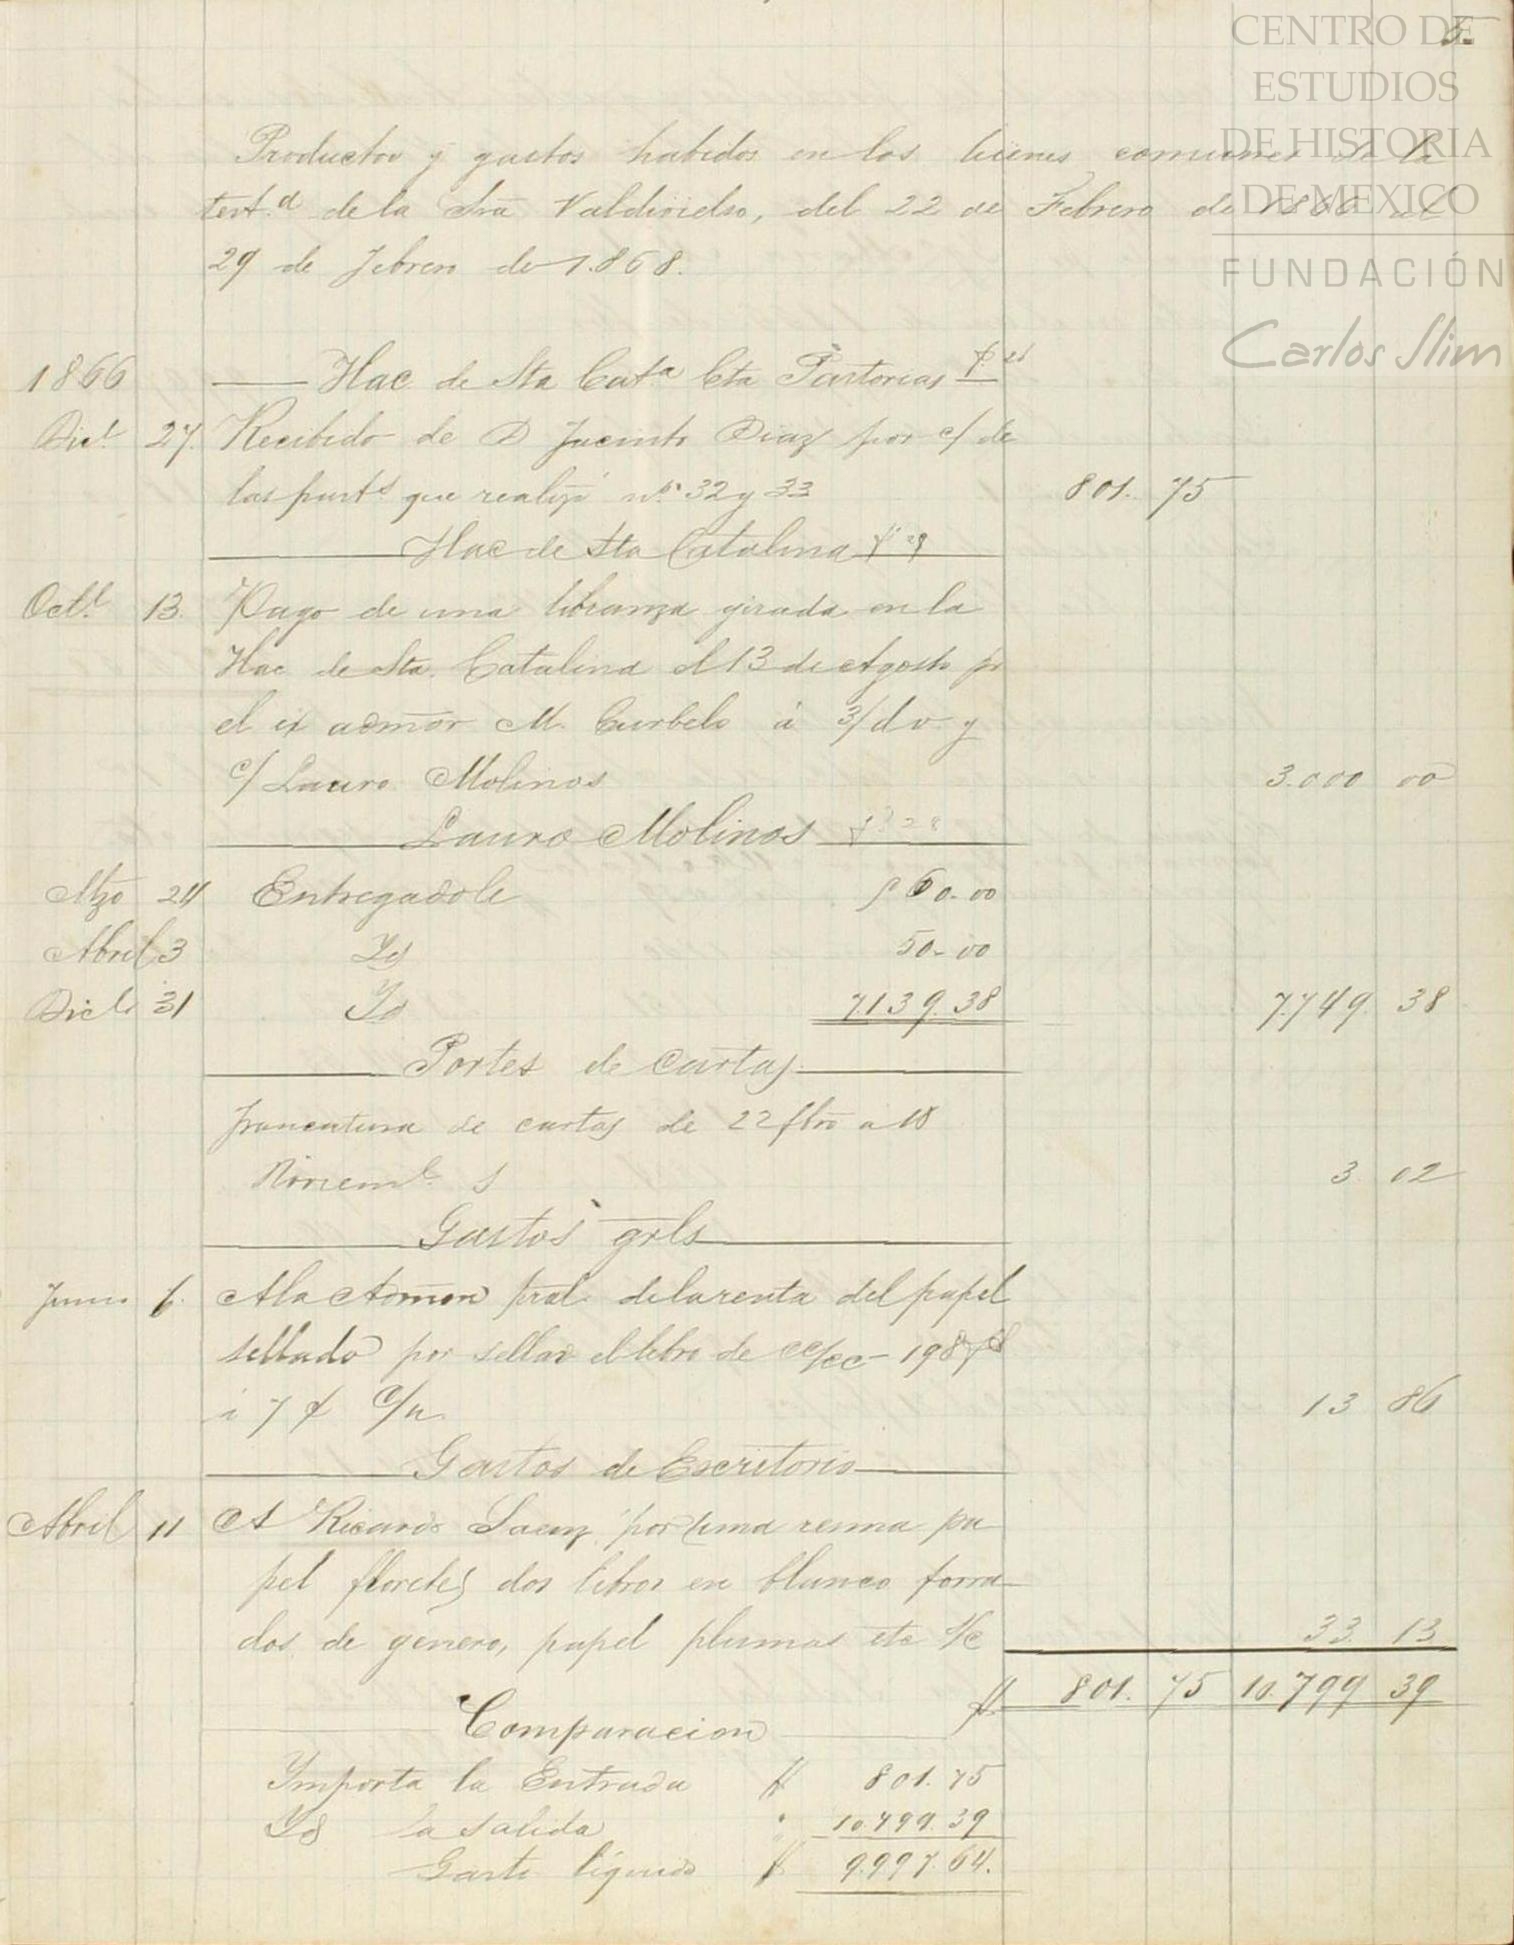 CENTRO DE
ESTUDIOS
DE HISTORIA
DE MEXICO
FUNDACIÓN
Carlos Slim
Productos y gastos habidos en los bienes comunes de la
test.ª de la Sra Valdivielso, del 22 de Febrero de 1866 al
29 de febrero de 1.868.
1866 Hac de Sta Catª Cta Pastorias
Dice 27. Recibido de D Jacinto Diaz por c/ de
las parts que realizó nos 32 y 33 801. 75
Hac de Sta Catalina
Octe 13. Pago de una libranza girada en la
Hac de Sta. Catalina el 13 de Agosto pr
el ex admor M. Curbelo á 3/dv y
c/ Lauro Molinos 3.000 00
Lauro Molinos
Mzo 24 Entregadole 60.00
Abril 3 Yd 50-00
Dice 31 Yd 7.139.38 7.749. 38
Portes de cartas
francatura de cartas de 22 fbro a 18
Noviembe 3. 02
Gastos grls
Junio 6. A la Admon pral de la renta del papel
sellado por sellar el libro de cc/cc 198
á 7 c/u 13 86
Gastos de Escritorio
Abril 11 A Ricardo Saenz por una resma pa-
pel florete, dos libros en blanco forra-
dos de género, papel plumas etc 33. 13
$ 801. 75 10.799 39
Comparacion
Importa la Entrada $ 801.75
Yd la salida " 10.799.39
Gasto líquido $ 9.997.64.